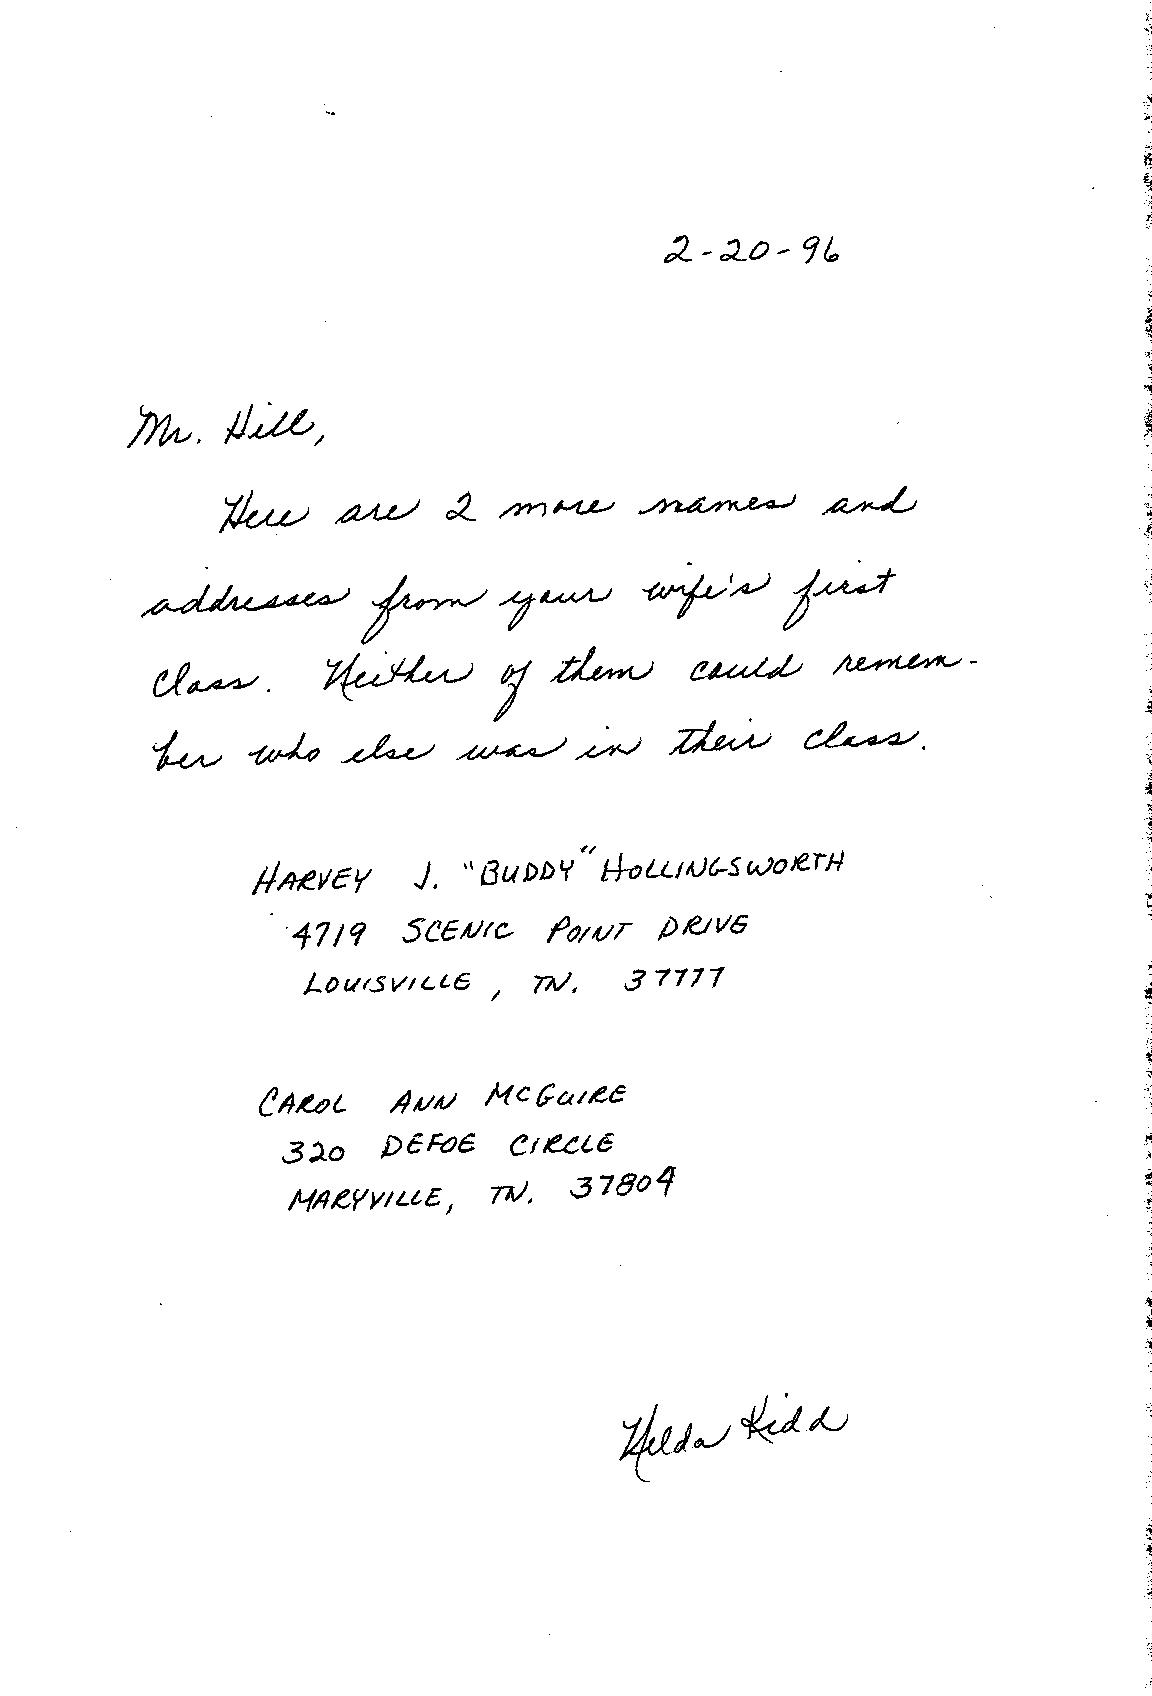 2-20-96
Mr. Hill,
Here are 2 more names and
addresses from your wife's first
class. Neither of them could remem-
ber who else was in their class.
HARVEY J. "BUDDY" HOLLINGSWORTH
4719 SCENIC POINT DRIVE
LOUISVILLE, TN. 37777
CAROL ANN McGUIRE
320 DEFOE CIRCLE
MARYVILLE, TN. 37804
Hilda Kidd